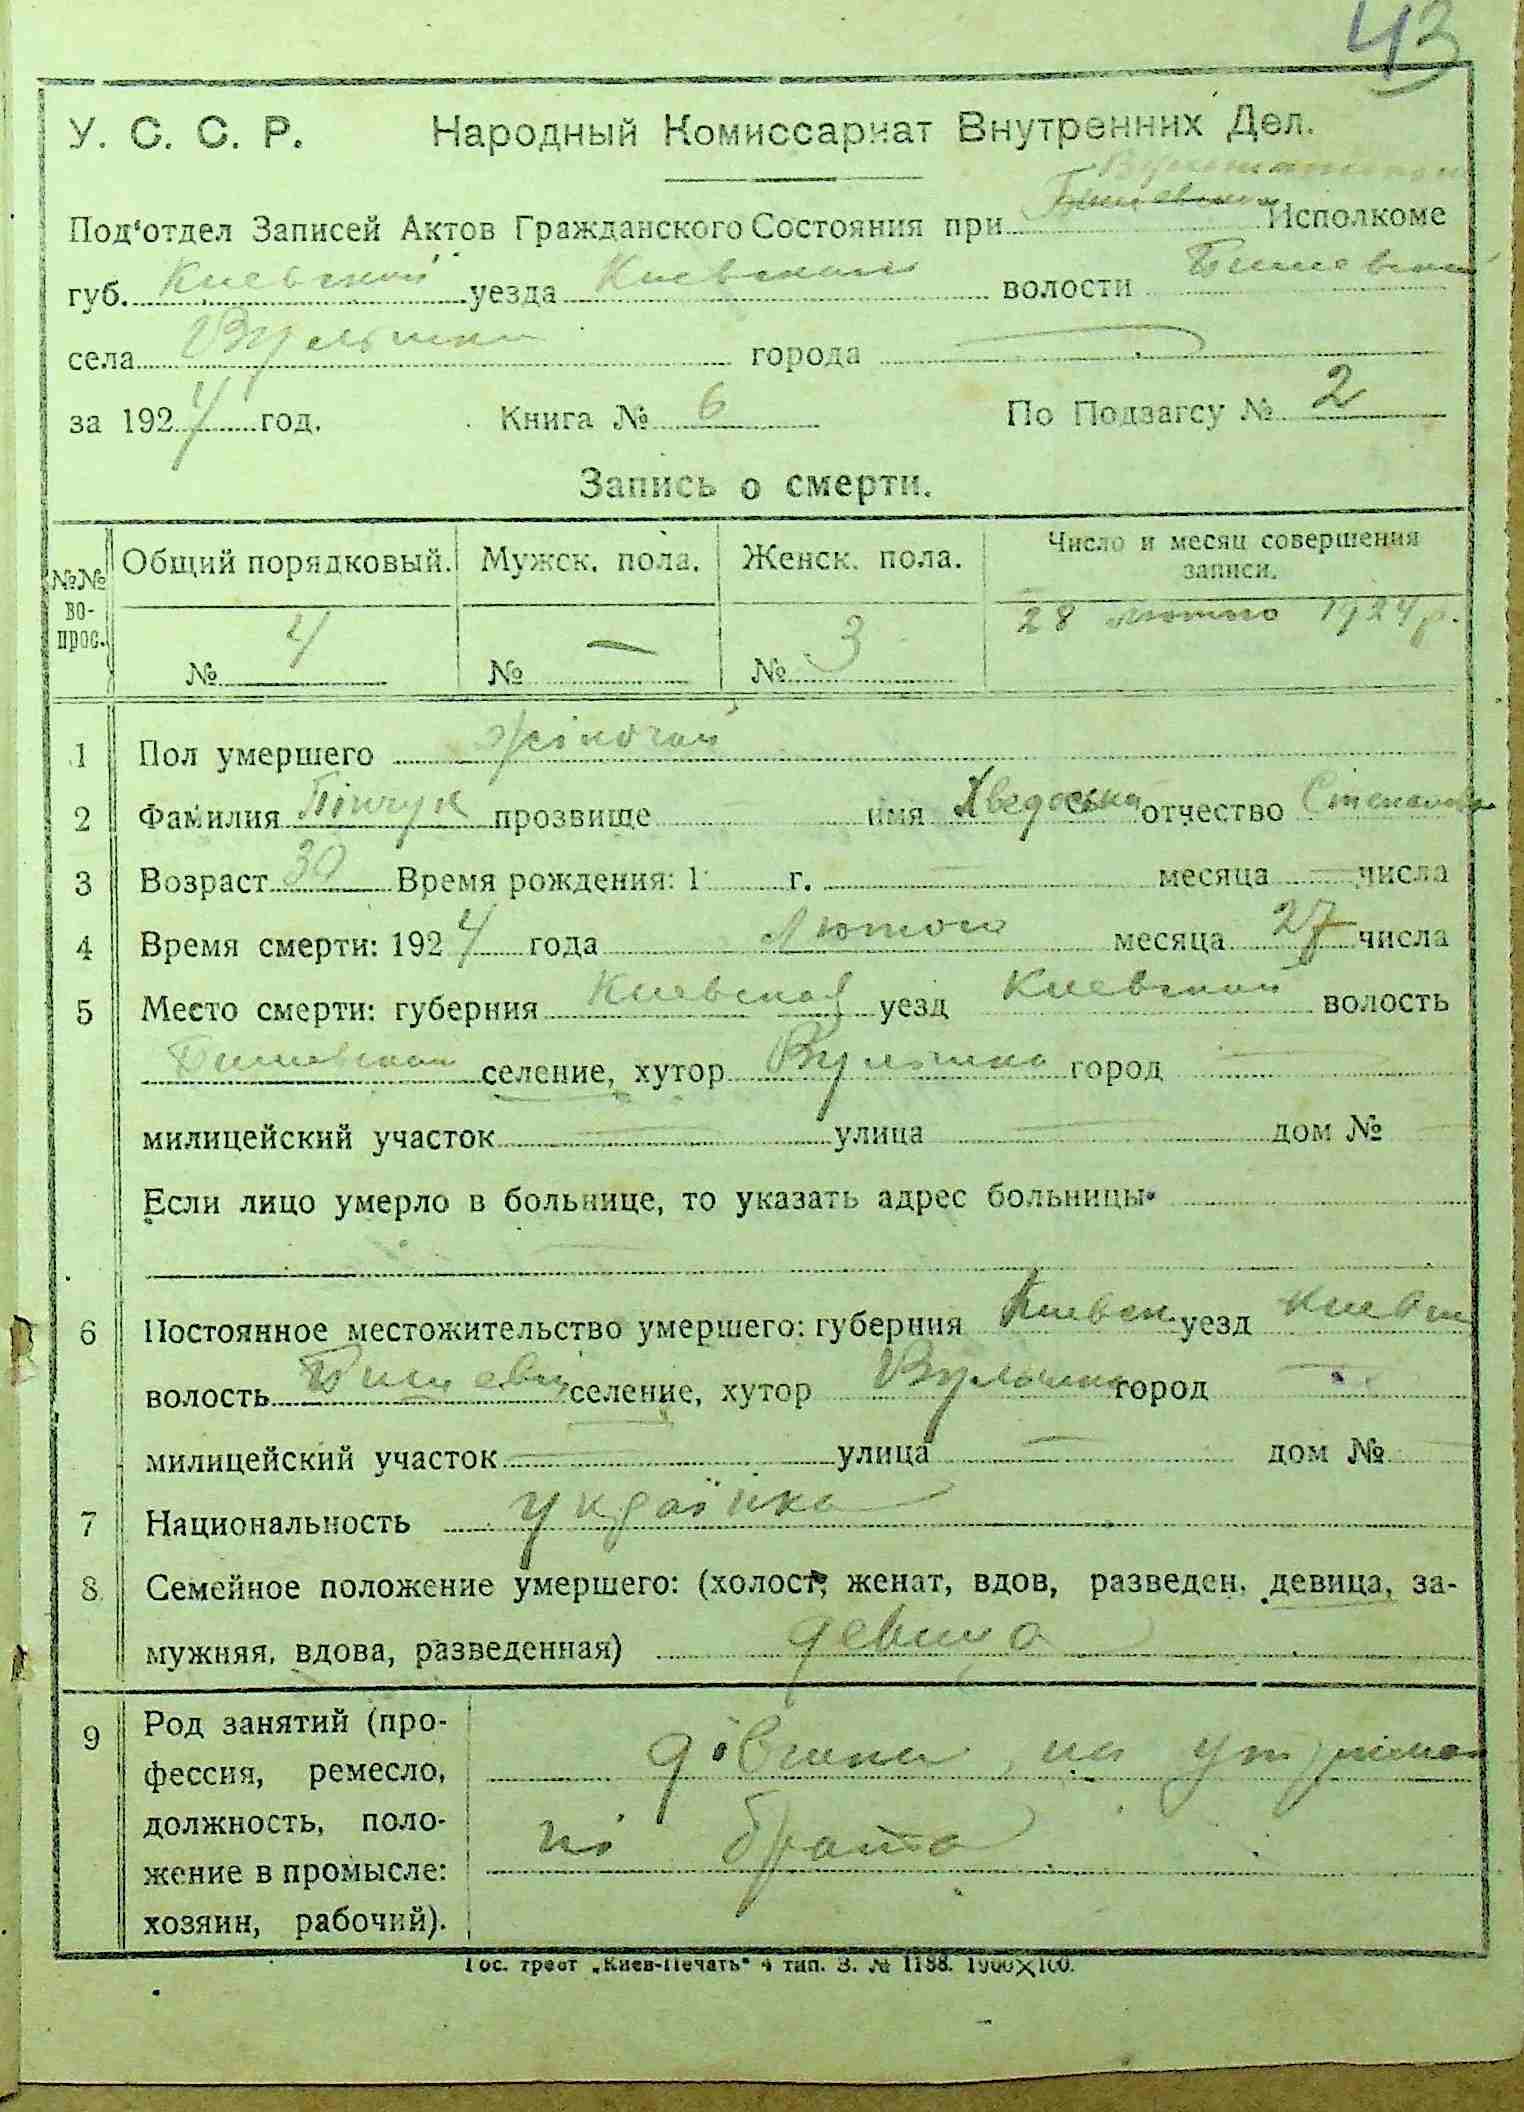 43
У. С. С. Р. Народный Комиссариат Внутренних Дел.
Под'отдел Записей Актов Гражданского Состояния при Бышевском Исполкоме
губ. Киевской уезда Киевской волости Бышевской
села города —
за 1924 год. Книга № 6 По Подзагсу № 2
Запись о смерти.
№№ вопрос. Общий порядковый. Мужск. пола. Женск. пола. Число и месяц совершения записи.
№ 4 № — № 3 28 лютого 1924 р.
1 Пол умершего жіночий
2 Фамилия Пінчук прозвище имя Хведоська отчество Степановна
3 Возраст 30 Время рождения: 1 г. — месяца — числа
4 Время смерти: 1924 года Лютого месяца 27 числа
5 Место смерти: губерния Киевская уезд Киевский волость
Бышевская селение, хутор город —
милицейский участок — улица — дом № —
Если лицо умерло в больнице, то указать адрес больницы
6 Постоянное местожительство умершего: губерния Киевск. уезд Киевск
волость Бышевск селение, хутор город —
милицейский участок — улица — дом № —
7 Национальность українка
8 Семейное положение умершего: (холост, женат, вдов, разведен, девица, за-
мужняя, вдова, разведенная) девица
9 Род занятий (про-
фессия, ремесло,
должность, поло-
жение в промысле:
хозяин, рабочий).
дівчина, на утриман
ні брата
Гос. трест „Киев-Печать" 4 тип. З. № 1188. 1000×100.